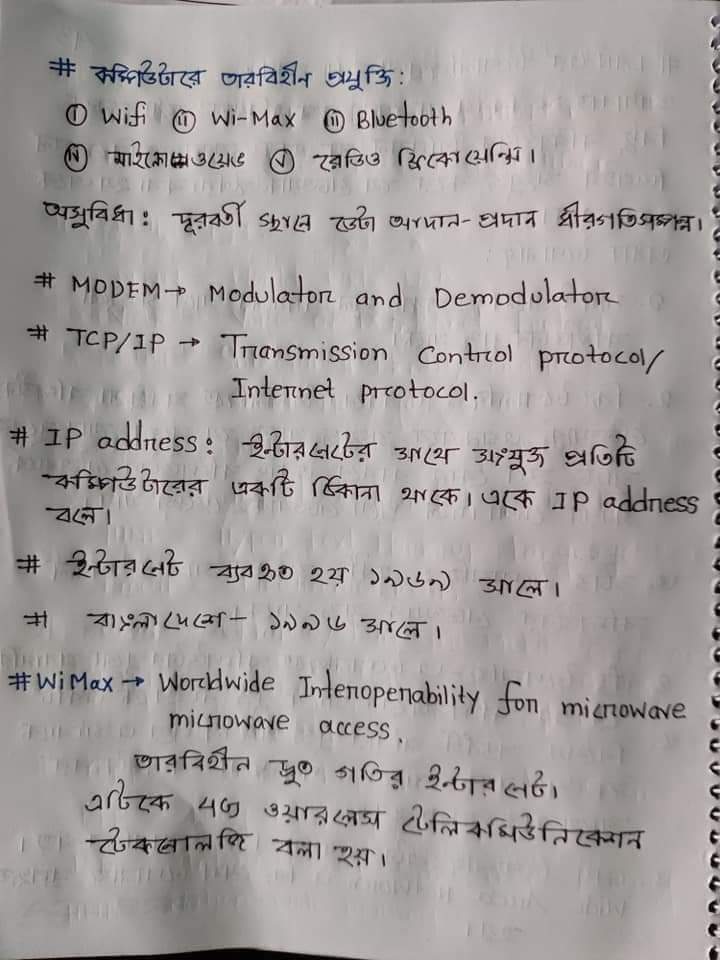 # কম্পিউটারে তারবিহীন প্রযুক্তি:
i Wifi ii Wi-Max iii Bluetooth
iv মাইক্রোওয়েভ v রেডিও ফ্রিকোয়েন্সি।
অসুবিধা: দূরবর্তী স্থানে ডেটা আদান-প্রদান ধীরগতিসম্পন্ন।
# MODEM→ Modulator and Demodulator
# TCP/IP → Transmission Control protocol/
Internet protocol.
# IP address: ইন্টারনেটের সাথে সংযুক্ত প্রতিটি
কম্পিউটারের একটি ঠিকানা থাকে। একে IP address
বলে।
# ইন্টারনেট ব্যবহৃত হয় ১৯৬৯ সালে।
# বাংলাদেশে- ১৯৯৬ সালে।
# WiMax → Worldwide Interoperability for microwave
microwave access.
তারবিহীন দ্রুত গতির ইন্টারনেট।
এটিকে 4G ওয়ারলেস টেলিকমিউনিকেশন
টেকনোলজি বলা হয়।